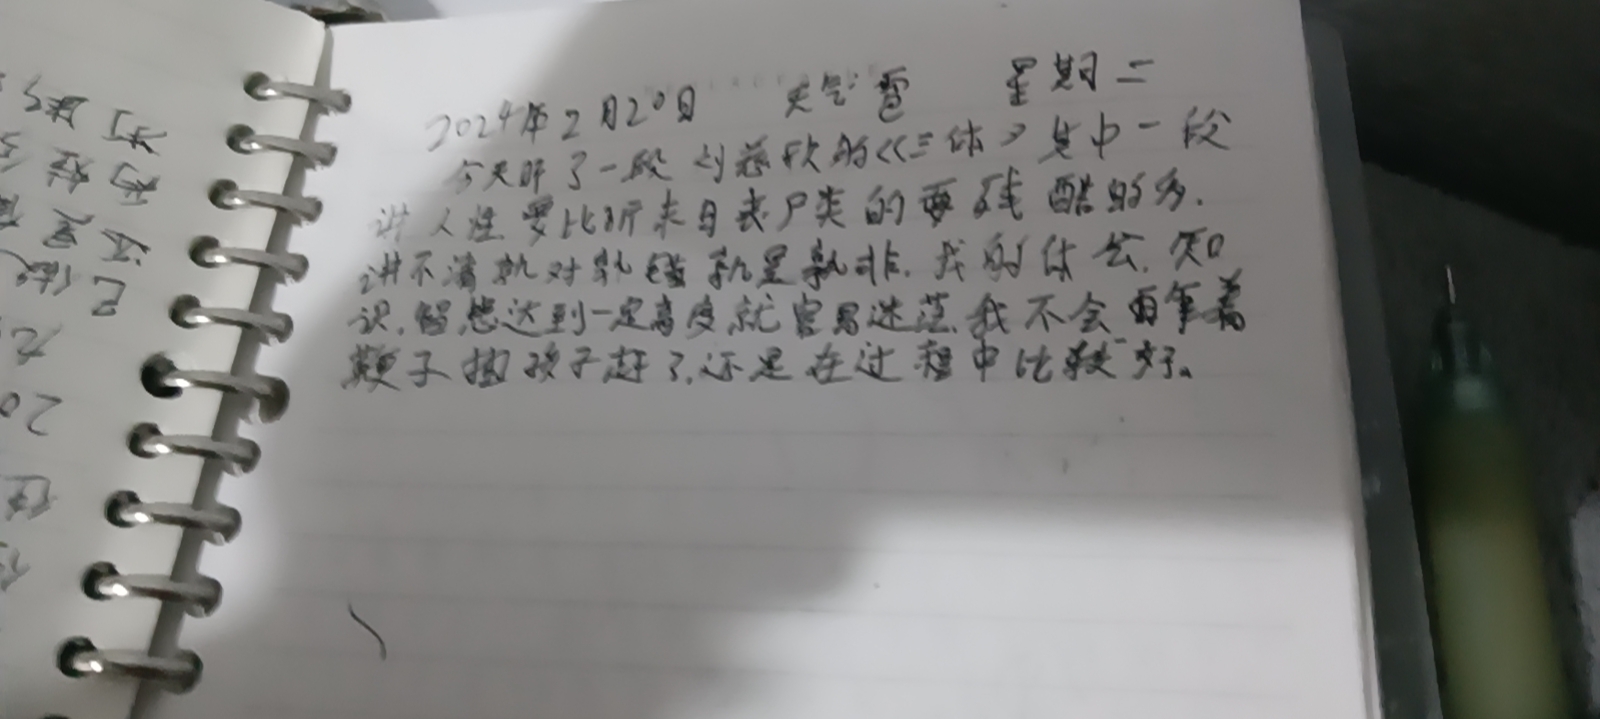 2024年2月20日 天气雪 星期二
今天听了一段刘慈欣的《《三体》其中一段
讲人性要比所未日丧尸类的要残酷的多.
讲不清孰对孰错孰是孰非.我的体会.知
识.智慧达到一定高度就容易迷茫.我不会再拿着
鞭子抽孩子赶了.还是在过程中比较好。